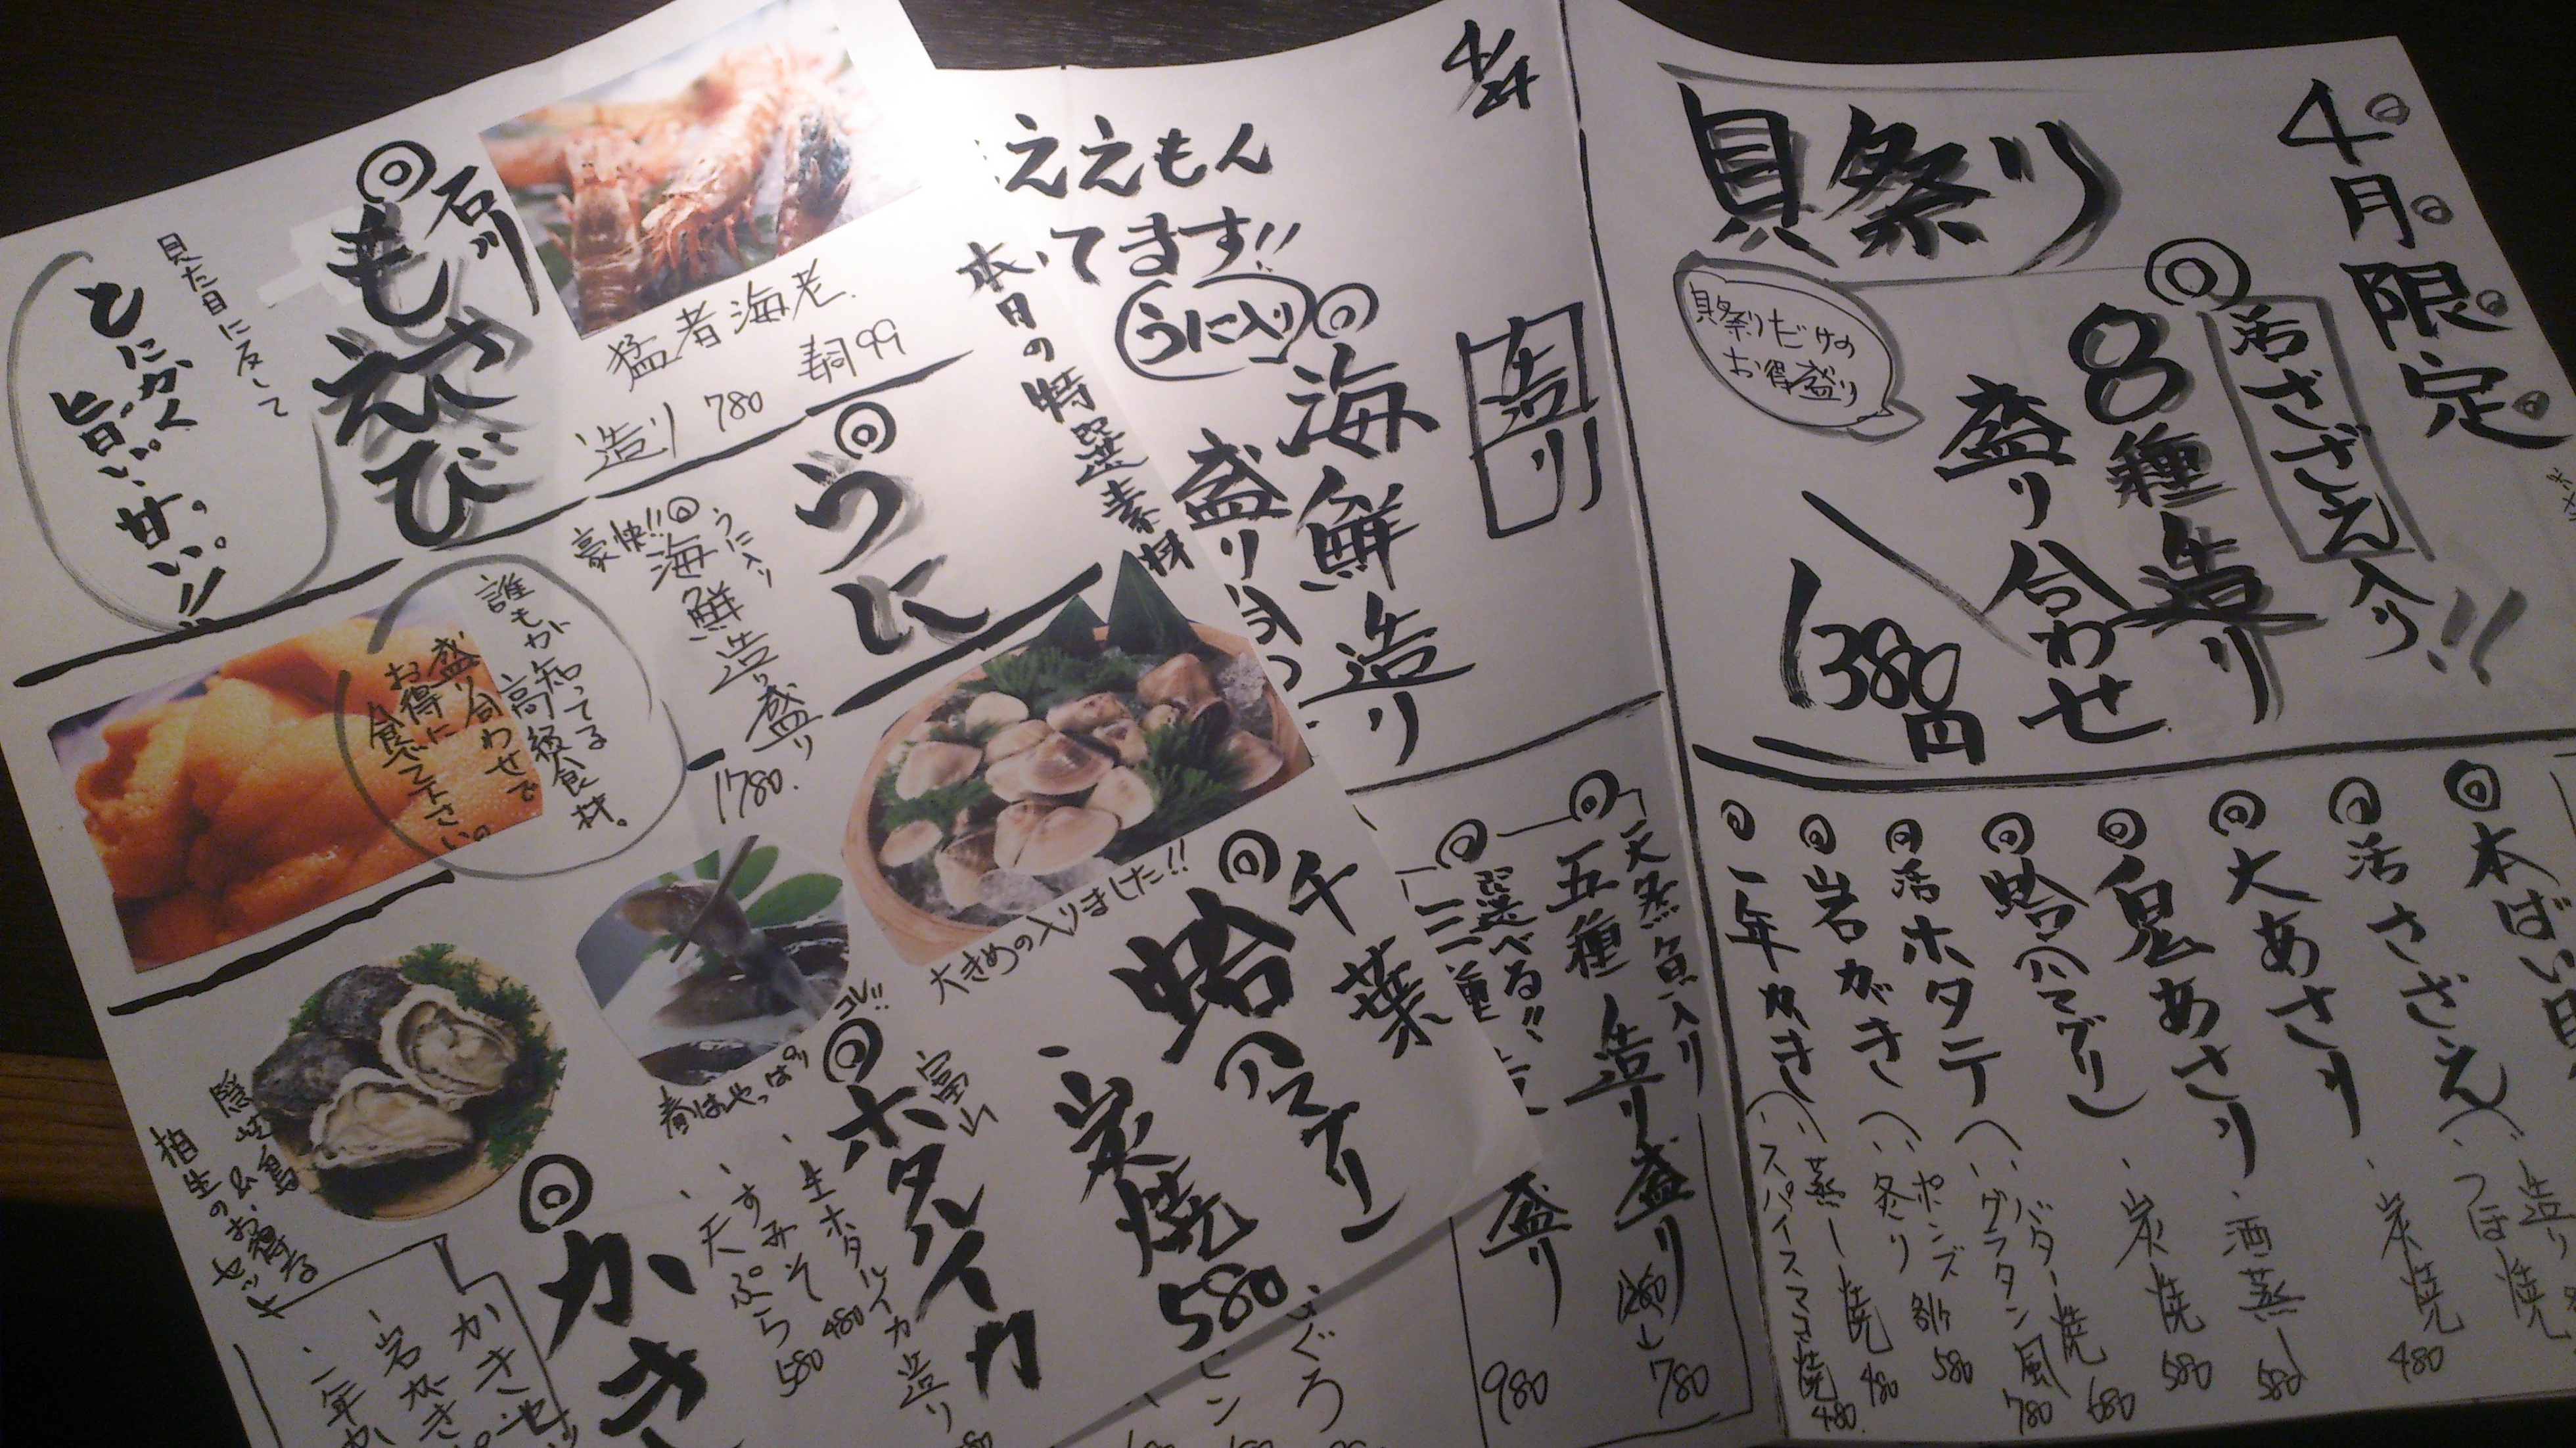 4月限定
貝祭り
活さざえ入り!!
8種造り
盛り合わせ
1380円
貝祭りだけの
お得盛り
活さざえ
つぼ焼
造り
炭焼
480
大あさり
酒蒸し
580
鬼あさり
炭焼
580
蛤(ハマグリ)
バター焼
680
グラタン風
780
活ホタテ
ポンズ
580
岩がき
蒸し焼
480
一年がき
スパイスマヨ焼
480
4/24
造り
海鮮造り
盛り
うに入り
天然魚入り
五種造り盛り
1280
780
選べる!!
三種
盛り
980
ええもん
てます!!
本日の特選素材
石川
もさえび
見た目に反して
とにかく
旨い。甘い。!!
猛者海老
造り 780
うに
うに入り
海鮮造り盛り
豪快!!
1780.
誰もが知ってる
高級食材。
盛り合わせで
お得に
食べて下さい。
大きめの入りました!!
千葉
蛤(ハマグリ)
炭焼
580
春はやっぱりコレ!!
富山
ホタルイカ
生ホタルイカ造り
すみそ
480
天ぷら
580
かき
岩がき